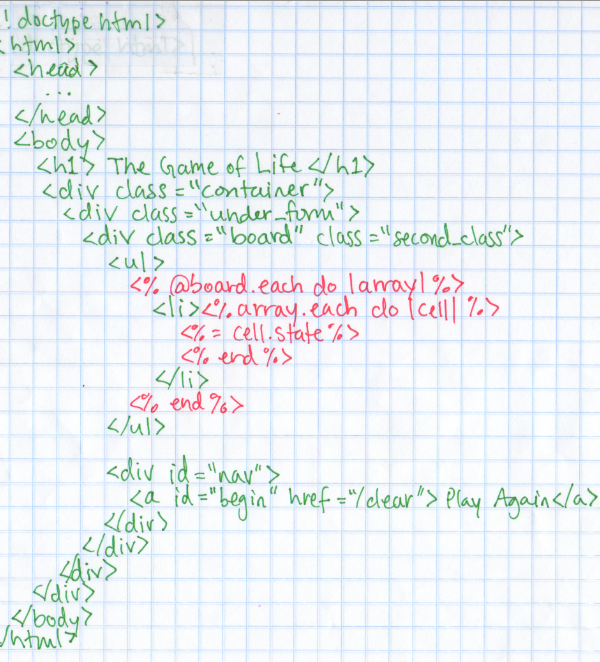 ! doctype html>
<html>
<head>
...
</head>
<body>
<h1> The Game of Life </h1>
<div class="container">
<div class="under_form">
<div class="board" class="second_class">
<ul>
<% @board.each do |array| %>
<li><% array.each do |cell| %>
<%= cell.state %>
<% end %>
</li>
<% end %>
</ul>
<div id="nav">
<a id="begin" href="/clear"> Play Again</a>
</div>
</div>
</div>
</div>
</body>
/html>